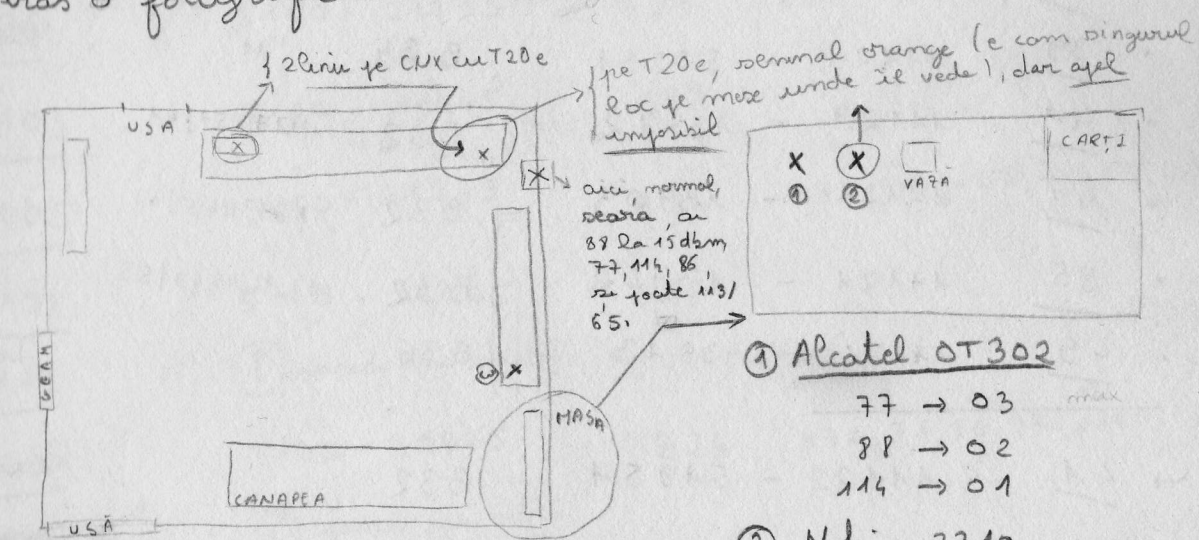 o fotografi
2 linii pe CNX cu T20e
pe T20e, semnal orange (e cam singurul
loc pe mese unde îl vede), dar apel
imposibil
USA
X
X
X
aici, normal,
seara, au
88 la 15dbm,
77, 114, 86,
și poate 113/
65.
X
X
1
2
VAZĂ
CARȚI
GEAM
3 X
MASA
CANAPEA
USĂ
1 Alcatel OT302
77 → 03
88 → 02
114 → 01
max
2